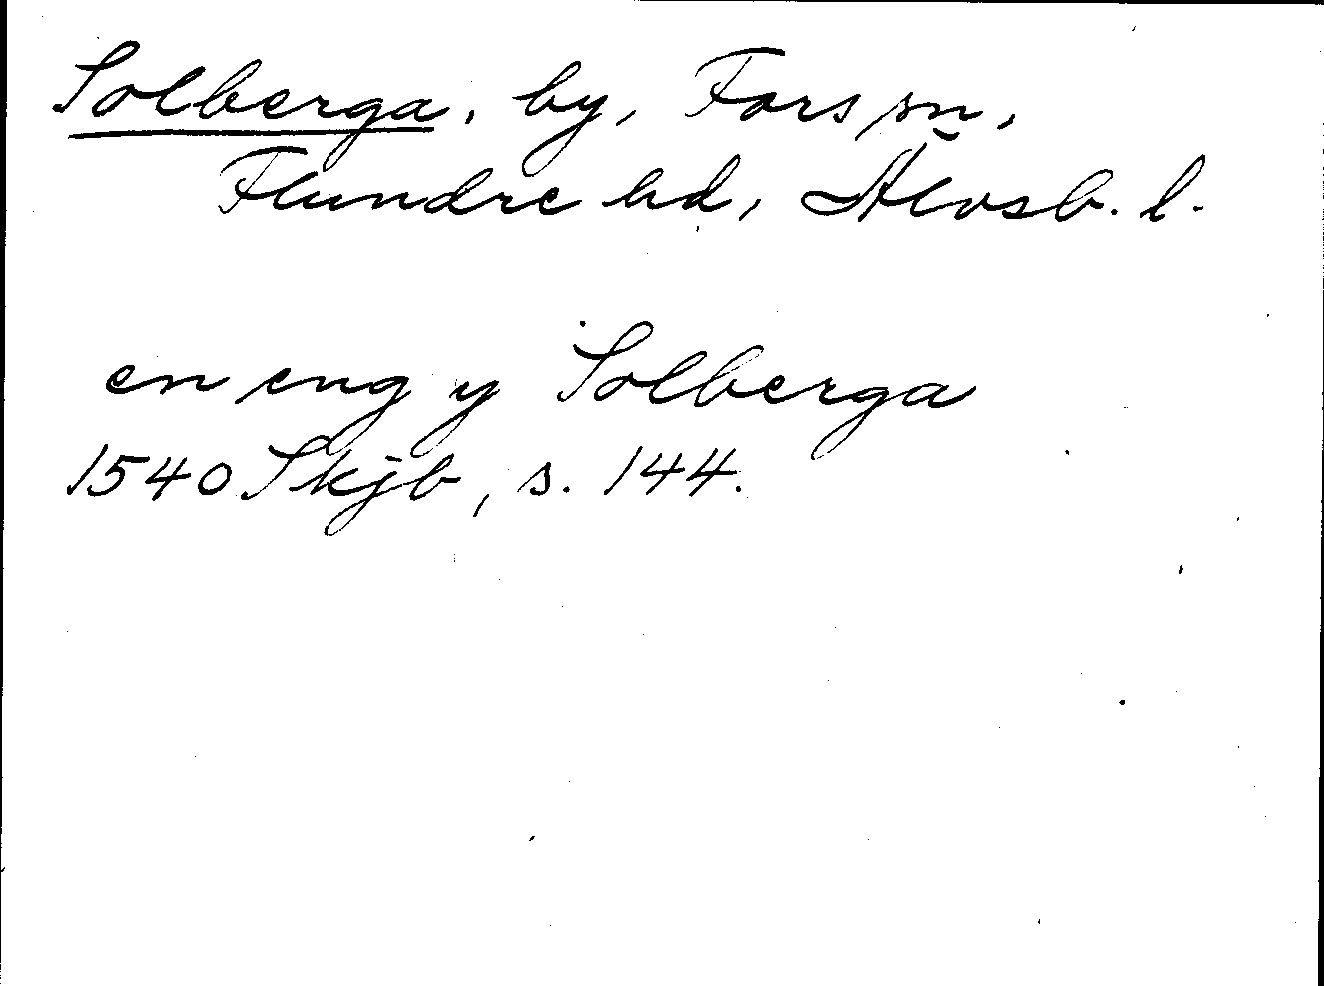 Solberga, by, Fors sn,
Flundre hd, Älvsb. l.
en eng y Solberga
1540 Skjb, s. 144.